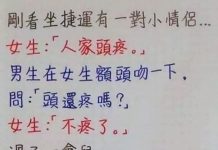 剛看坐捷運有一對小情侶...
女生:「人家頭疼。」
男生在女生額頭吻一下,
問:「頭還疼嗎?」
女生:「不疼了。」